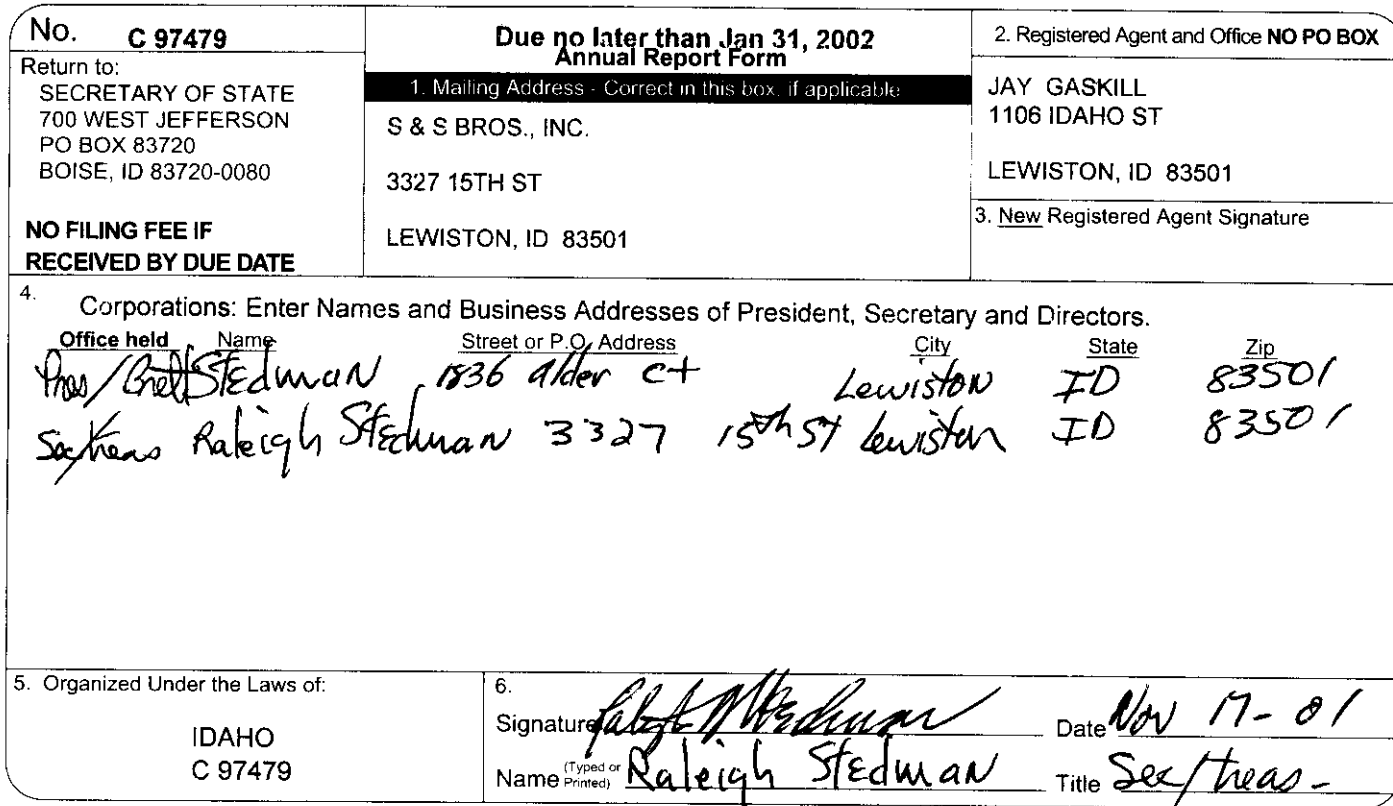 No. C 97479
Return to:
SECRETARY OF STATE
700 WEST JEFFERSON
PO BOX 83720
BOISE, ID 83720-0080
NO FILING FEE IF
RECEIVED BY DUE DATE
Due no later than Jan 31, 2002
Annual Report Form
1. Mailing Address - Correct in this box, if applicable
S & S BROS., INC.
3327 15TH ST
LEWISTON, ID 83501
2. Registered Agent and Office NO PO BOX
JAY GASKILL
1106 IDAHO ST
LEWISTON, ID 83501
3. New Registered Agent Signature
4. Corporations: Enter Names and Business Addresses of President, Secretary and Directors.
Office held Name Street or P.O. Address City State Zip
Pres/ Brett Stedman 1836 Alder Ct Lewiston ID 83501
Sec/treas Raleigh Stedman 3327 15th St Lewiston ID 83501
5. Organized Under the Laws of:
IDAHO
C 97479
6.
Signature Date Nov 17-01
Name (Typed or Printed) Raleigh Stedman Title Sec/treas-